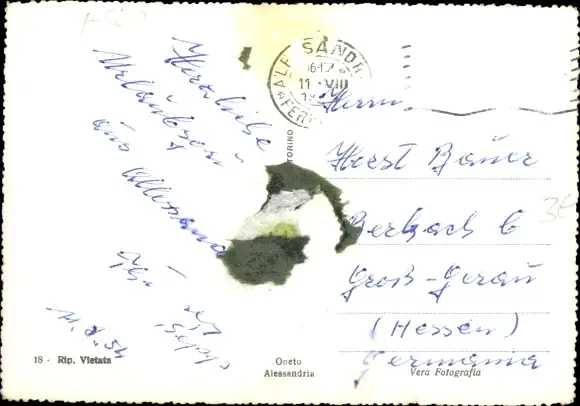 Herzliche
Urlaubsgrüße
aus Allesandria
Ihr
11.8.54
ALESSANDRIA
11 VIII
FERR
TORINO
Herrn
Horst Bauer
Berkach b
Groß-Gerau
(Hessen)
Germania
18 - Rip. Vietata
Oneto
Alessandria
Vera Fotografia